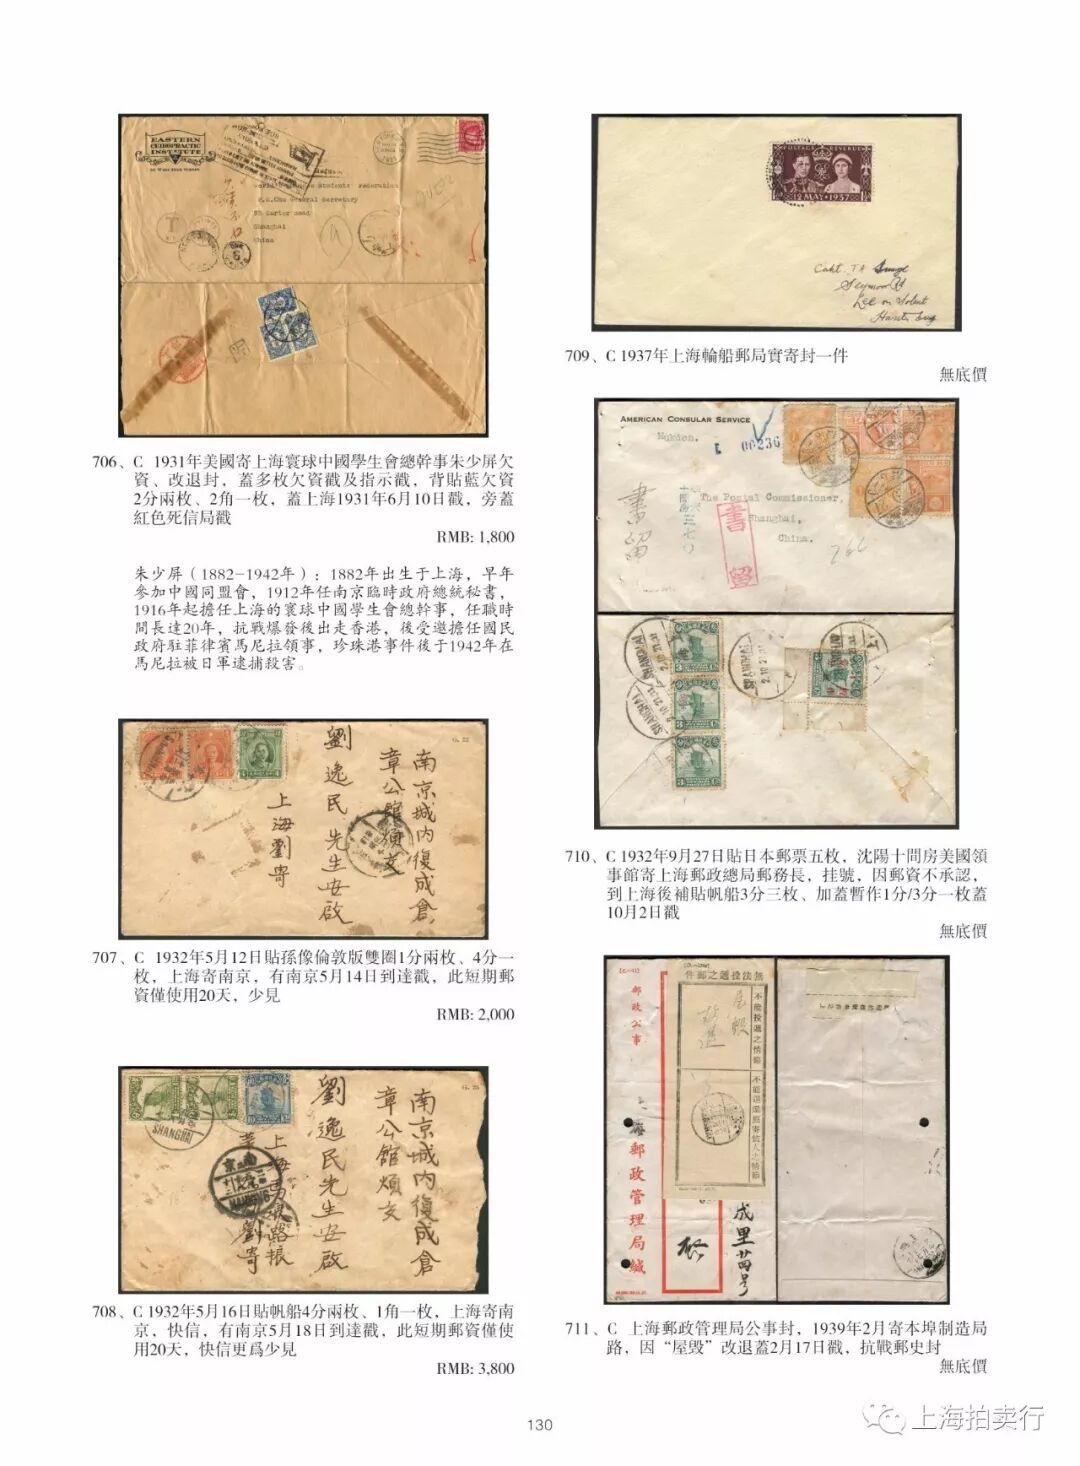 EASTERN
CHIROPRACTIC
INSTITUTE
World Chinese Students' Federation
General Secretary
Shanghai
China
706、C 1931年美國寄上海寰球中國學生會總幹事朱少屏欠
資、改退封，蓋多枚欠資戳及指示戳，背貼藍欠資
2分兩枚、2角一枚，蓋上海1931年6月10日戳，旁蓋
紅色死信局戳
RMB: 1,800
朱少屏（1882-1942年）：1882年出生于上海，早年
參加中國同盟會，1912年任南京臨時政府總統秘書，
1916年起擔任上海的寰球中國學生會總幹事，任職時
間長達20年，抗戰爆發後出走香港，後受邀擔任國民
政府駐菲律賓馬尼拉領事，珍珠港事件後于1942年在
馬尼拉被日軍逮捕殺害。
南京城内復成倉
章公館煩交
劉逸民先生安啟
上海劉寄
707、C 1932年5月12日貼孫像倫敦版雙圈1分兩枚、4分一
枚，上海寄南京，有南京5月14日到達戳，此短期郵
資僅使用20天，少見
RMB: 2,000
SHANGHAI
南京城内復成倉
章公館煩交
劉逸民先生安啟
708、C 1932年5月16日貼帆船4分兩枚、1角一枚，上海寄南
京，快信，有南京5月18日到達戳，此短期郵資僅使
用20天，快信更爲少見
RMB: 3,800
POSTAGE REVENUE
12 MAY 1937
Seymour Rd
Lee on Solent
709、C 1937年上海輪船郵局實寄封一件
無底價
AMERICAN CONSULAR SERVICE
Mukden.
00236
The Postal Commissioner,
Shanghai,
China.
書留
書留
SHANGHAI
SHANGHAI
710、C 1932年9月27日貼日本郵票五枚，沈陽十間房美國領
事館寄上海郵政總局郵務長，挂號，因郵資不承認，
到上海後補貼帆船3分三枚、加蓋暫作1分/3分一枚蓋
10月2日戳
無底價
郵政公事
件郵之遞投法無
不能投遞之情節
不能退還原寄信人之情節
屋毀
改退
郵政管理局緘
成里廿四号
711、C 上海郵政管理局公事封，1939年2月寄本埠制造局
路，因“屋毁”改退蓋2月17日戳，抗戰郵史封
無底價
130
上海拍卖行